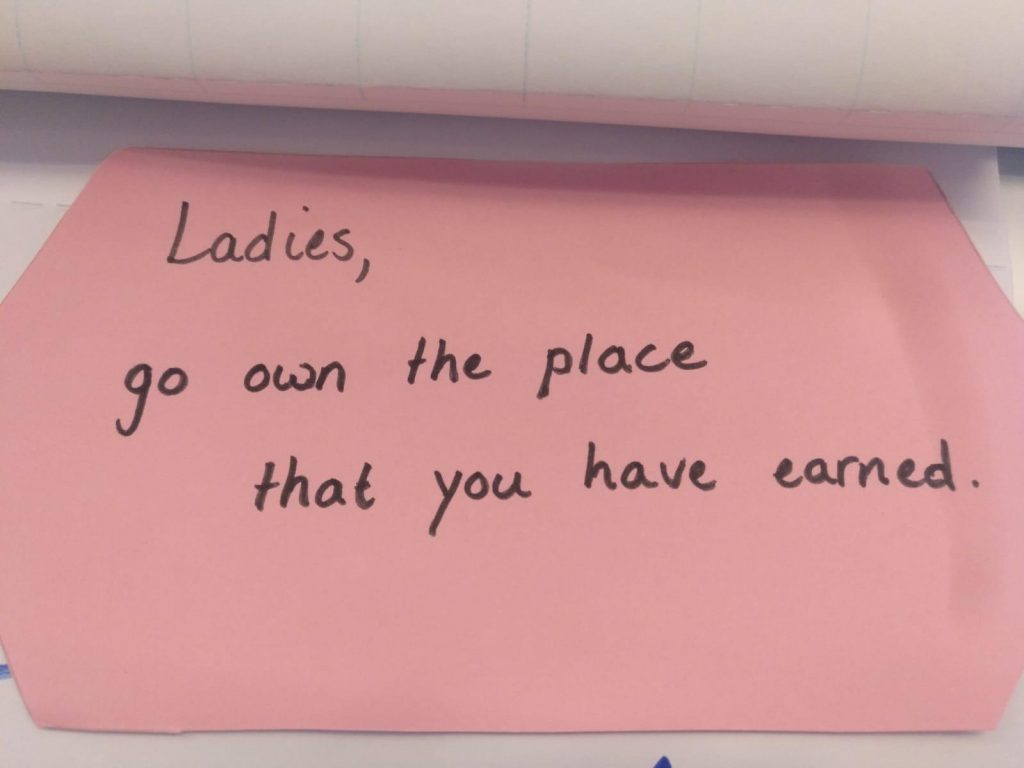 Ladies,
go own the place
that you have earned.